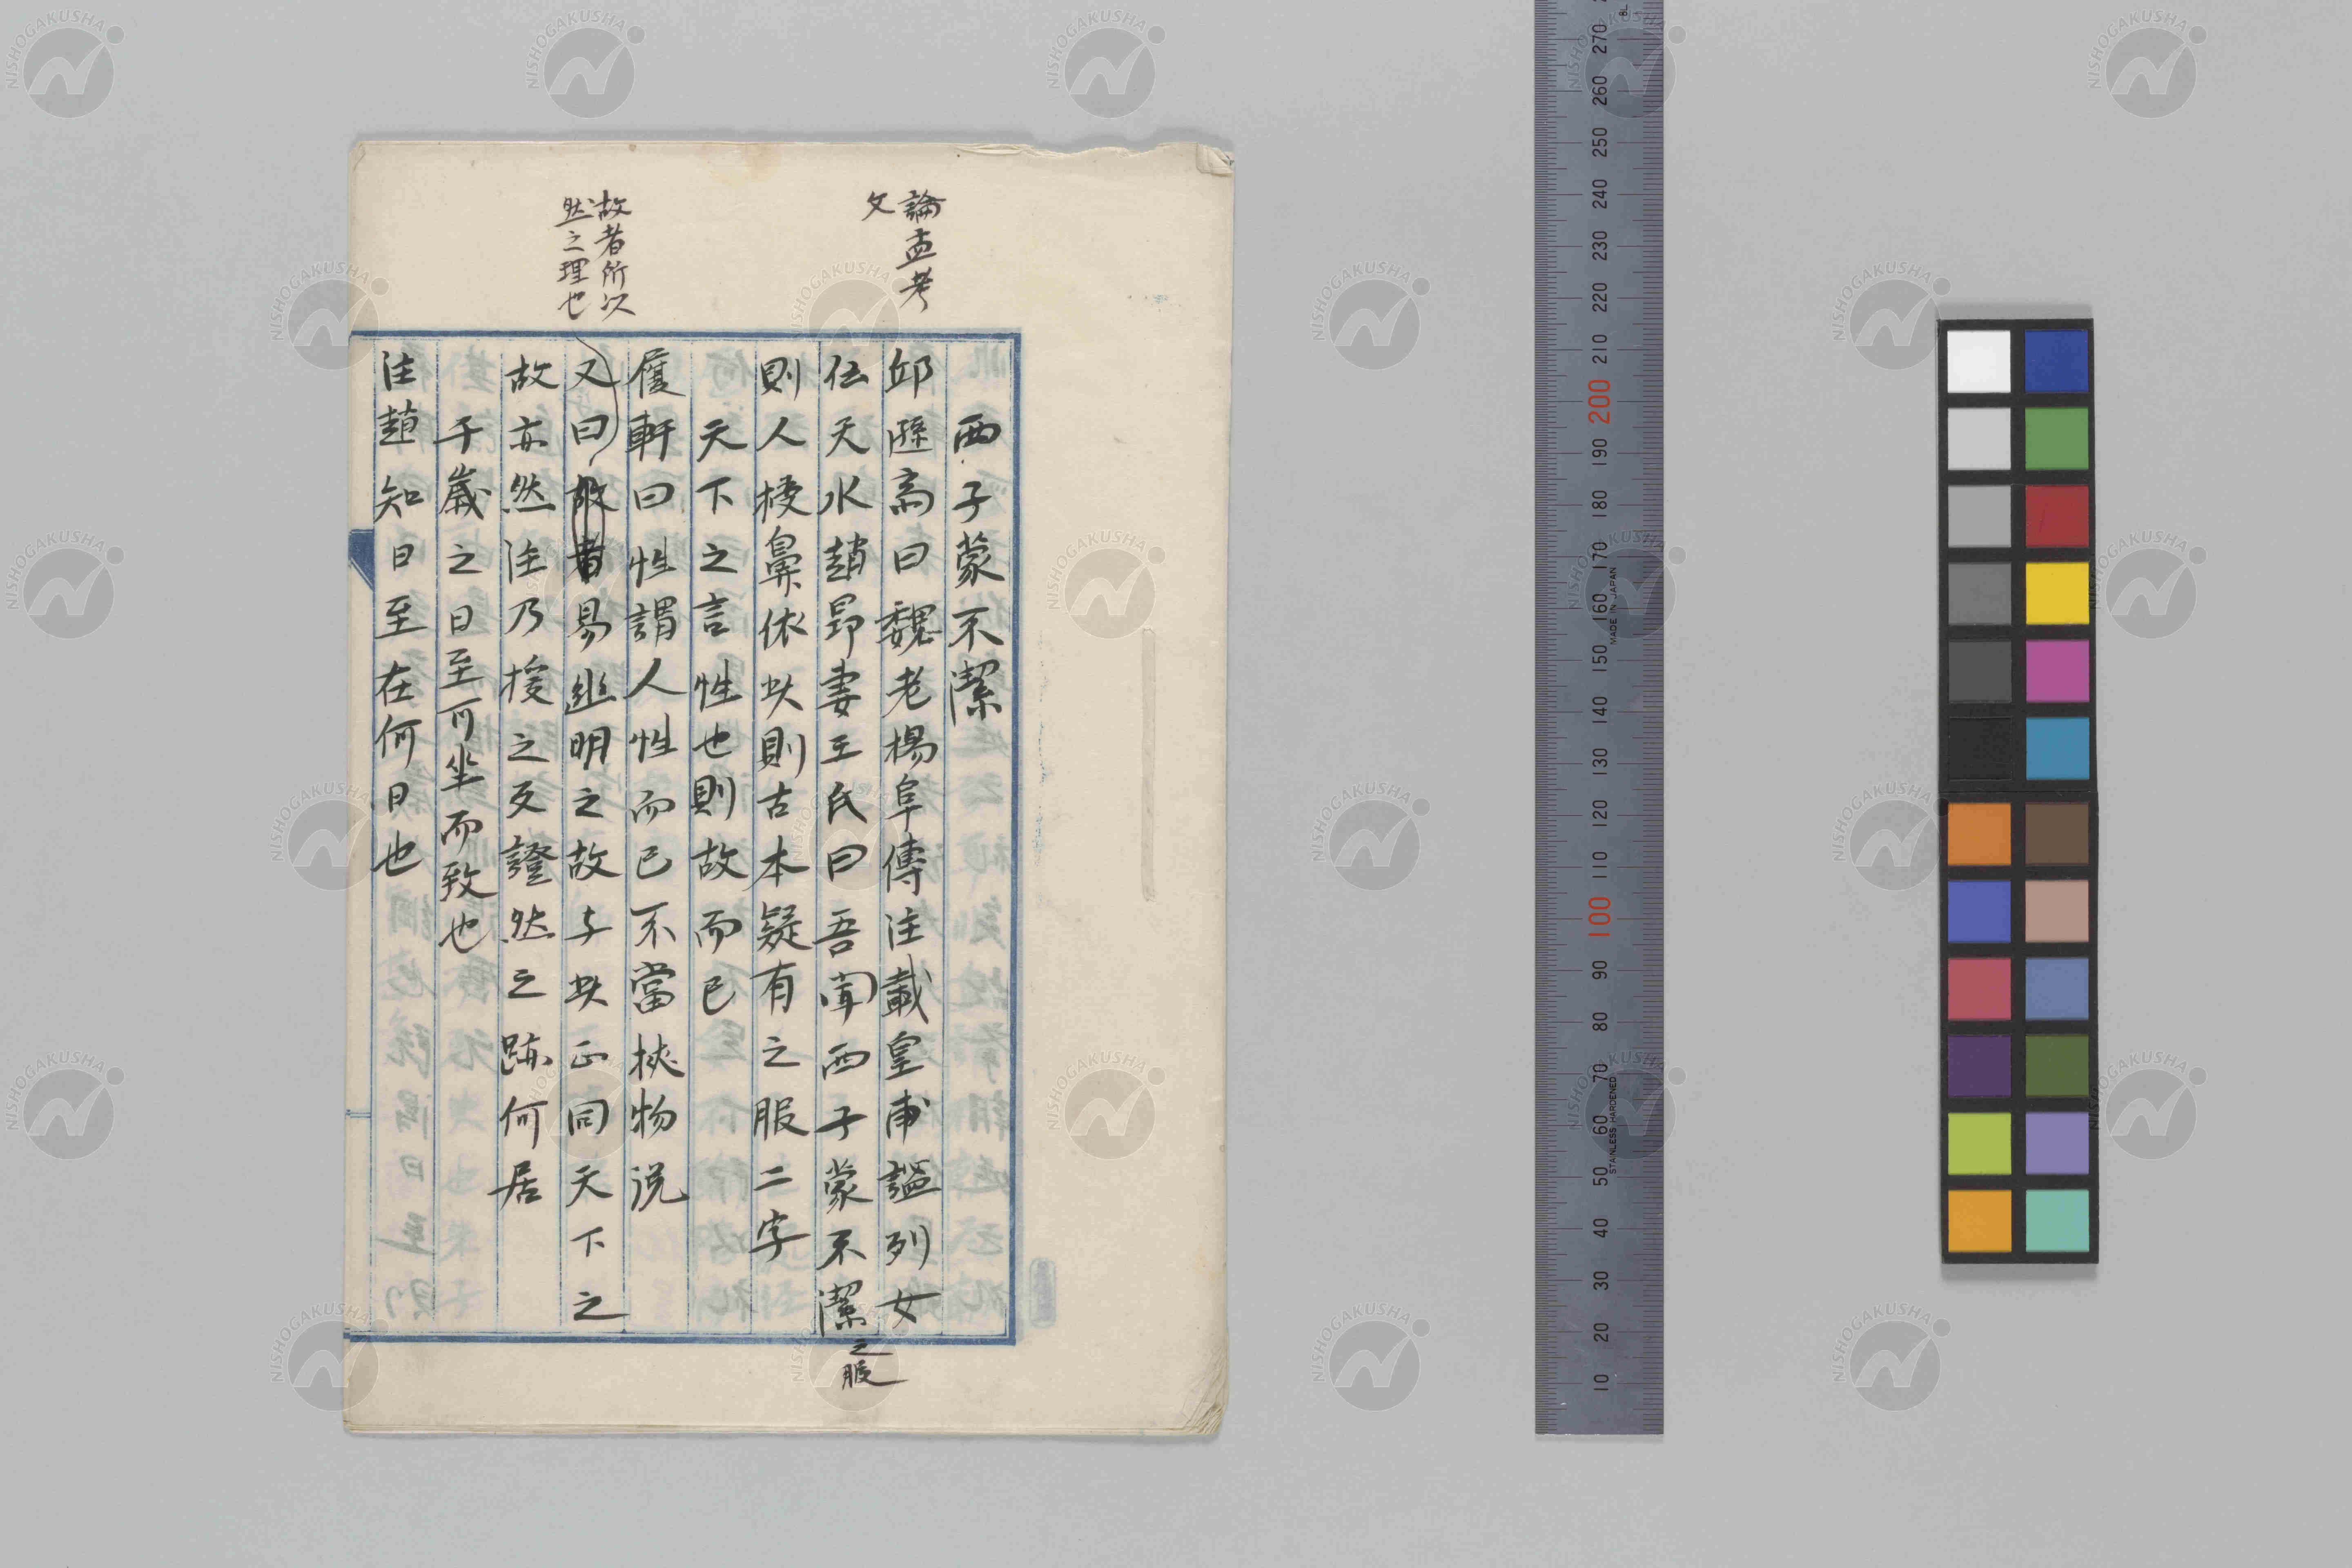 論孟考
文
故者所以
然之理也
西子蒙不潔
邱隱高曰魏老楊阜傳注載皇甫謐列女
伝天水趙昂妻王氏曰吾聞西子蒙不潔之服
則人掩鼻依此則古本疑有之服二字
天下之言性也則故而已
履軒曰性謂人性而已不當挾物説
又曰易幽明之故与此正同天下之
故亦然注乃援之反證然之跡何居
千歳之日至可坐而致也
注趙知日至在何日也
270
260
250
240
230
220
210
200
190
180
170
160
150
140
130
120
110
100
90
80
70
60
50
40
30
20
10
MADE IN JAPAN
STAINLESS HARDENED
NISHOGAKUSHA